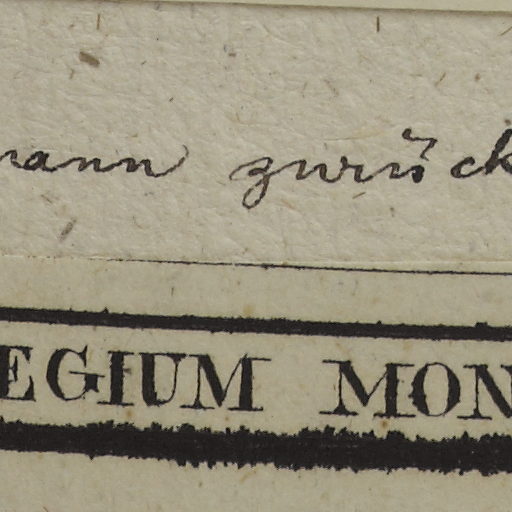 nann zurück
EGIUM MON